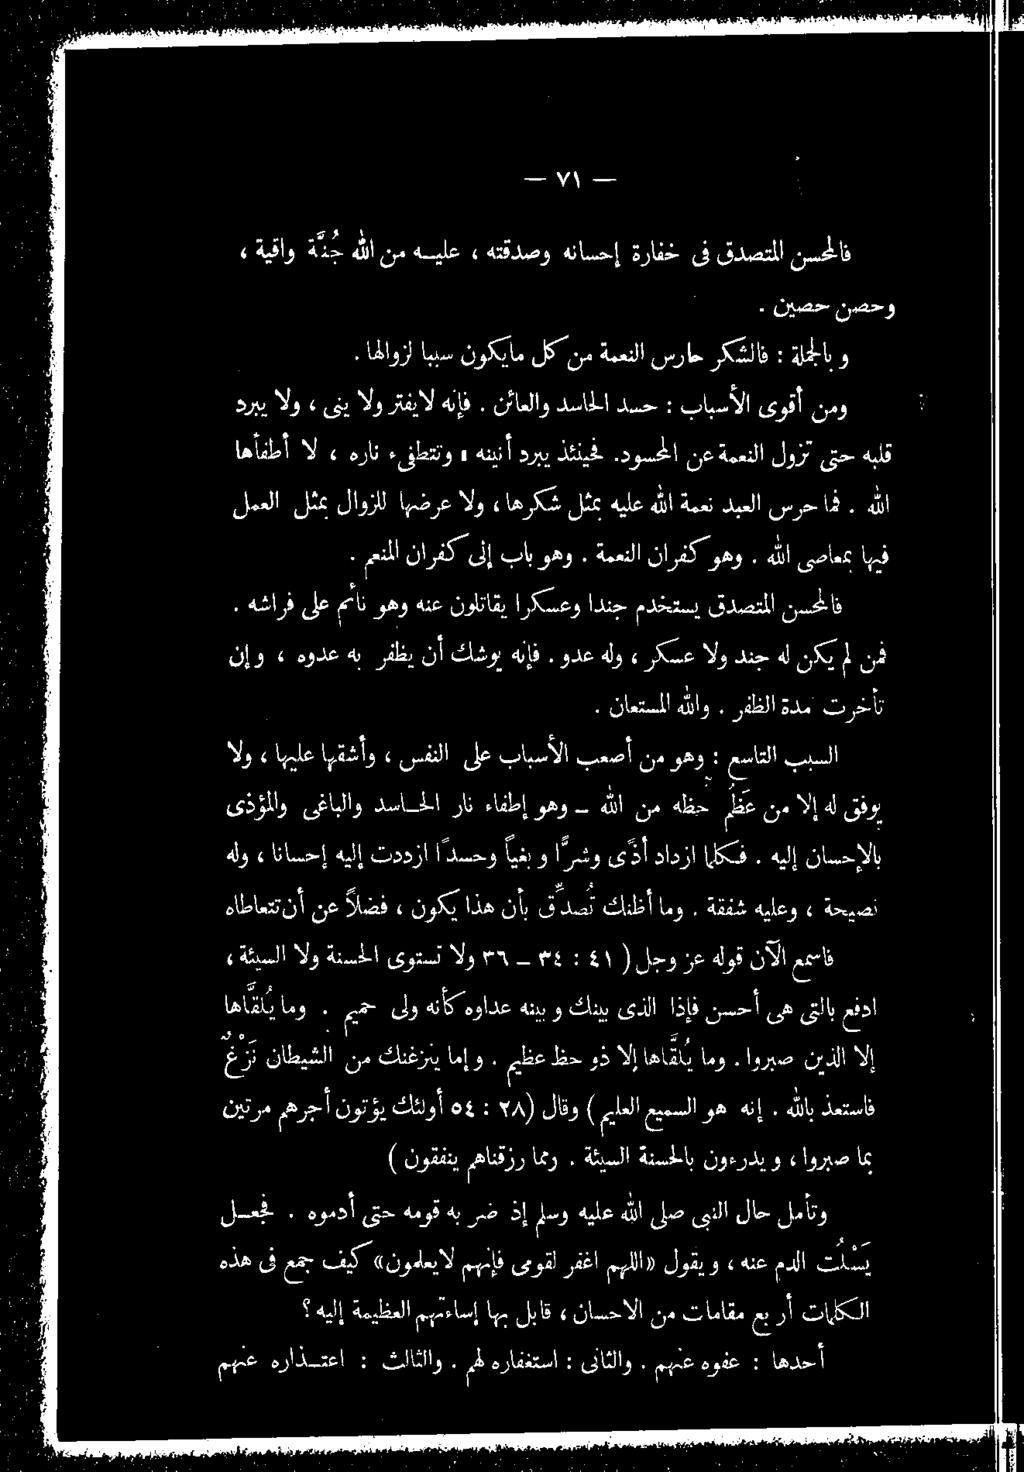 — ٧١ —
فالمحسن المتصدق فى خفارة إحسانه وصدقته ، عليه من الله جُنَّة واقية ،
وحصن حصين .
وبالجملة : فالشكر حارس النعمة من كل مايكون سببا لزوالها .
ومن أقوى الأسباب : حسد الحاسد والعائن . فإنه لايفتر ولا ينى ، ولا يبرد
قلبه حتى تزول النعمة عن المحسود . فحينئذ يبرد أنينه وتنطفىء ناره ، لا أطفأها
الله . فما حرس العبد نعمة الله عليه بمثل شكرها ، ولا عرضها للزوال بمثل العمل
فيها بمعاصى الله . وهو كفران النعمة . وهو باب إلى كفران المنعم .
فالمحسن المتصدق يستخدم جندا وعسكرا يقاتلون عنه وهو نائم على فراشه .
فمن لم يكن له جند ولا عسكر ، وله عدو . فإنه يوشك أن يظفر به عدوه ، وإن
تأخرت مدة الظفر . والله المستعان .
السبب التاسع : وهو من أصعب الأسباب على النفس ، وأشقها عليها ، ولا
يوفق له إلا من عَظُم حظه من الله – وهو إطفاء نار الحاسد والباغى والمؤذى
بالإحسان إليه . فكلما ازداد أذًى وشرًّا وبغياً وحسداً ازددت إليه إحسانا ، وله
نصيحة ، وعليه شفقة . وما أظنك تُصدِّق بأن هذا يكون ، فضلاً عن أن تتعاطاه
فاسمع الآن قوله عز وجل ( ٤١ : ٣٤ – ٣٦ ولا تستوى الحسنة ولا السيئة ،
ادفع بالتى هى أحسن فإذا الذى بينك وبينه عداوه كأنه ولى حميم . وما يُلقَّاها
إلا الذين صبروا . وما يُلقَّاها إلا ذو حظ عظيم . وإما ينزغنك من الشيطان نَزْغٌ
فاستعذ بالله . إنه هو السميع العليم ) وقال ( ٢٨ : ٥٤ أولئك يؤتون أجرهم مرتين
بما صبروا ، ويدرءون بالحسنة السيئة . ومما رزقناهم ينفقون )
وتأمل حال النبى صلى الله عليه وسلم إذ ضر به قومه حتى أدموه . فجعل
يَسْلُت الدم عنه ، ويقول «اللهم اغفر لقومى فإنهم لايعلمون» كيف جمع فى هذه
الكلمات أربع مقامات من الاحسان ، قابل بها إساءتهم العظيمة إليه ؟
أحدها : عفوه عنهم . والثانى : استغفاره لهم . والثالث : اعتذاره عنهم